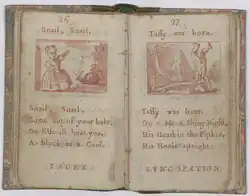 26
Snail, Snail.
Snail, Snail,
Come out of your hole,
Or else I'll beat you,
As black as a Coal.
TACET.
27
Taffy was born.
Taffy was born
On a Moon Shiny Night,
His Head in the Pipkin,
His Heels upright.
SYNCOPATION.